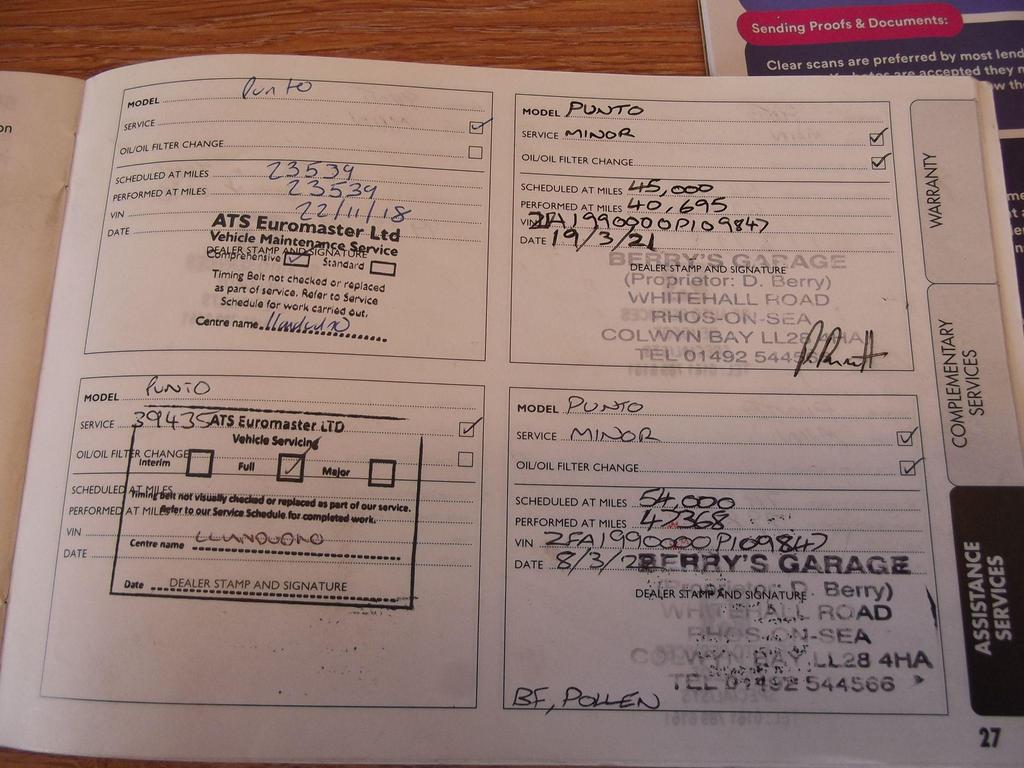 Sending Proofs & Documents:
Clear scans are preferred by most lend
are accepted they m
on
MODEL Punto
SERVICE
OIL/OIL FILTER CHANGE
SCHEDULED AT MILES 23539
PERFORMED AT MILES 23539
VIN 22/11/18
DATE
ATS Euromaster Ltd
Vehicle Maintenance Service
DEALER STAMP AND SIGNATURE
Comprehensive Standard
Timing Belt not checked or replaced
as part of service. Refer to Service
Schedule for work carried out.
Centre name
MODEL PUNTO
SERVICE MINOR
OIL/OIL FILTER CHANGE
SCHEDULED AT MILES 45,000
PERFORMED AT MILES 40,695
VIN ZFA1990000P109847
DATE 19/3/21
BERRY'S GARAGE
DEALER STAMP AND SIGNATURE
(Proprietor: D. Berry)
WHITEHALL ROAD
RHOS-ON-SEA
COLWYN BAY LL28 4HA
TEL 01492 544566
MODEL PUNTO
SERVICE 39435
ATS Euromaster LTD
Vehicle Servicing
OIL/OIL FILTER CHANGE
Interim Full Major
SCHEDULED AT MILES
Timing belt not visually checked or replaced as part of our service.
PERFORMED AT MILES
Refer to our Service Schedule for completed work.
VIN
Centre name LLANDUDNO
DATE
Date DEALER STAMP AND SIGNATURE
MODEL PUNTO
SERVICE MINOR
OIL/OIL FILTER CHANGE
SCHEDULED AT MILES 54,000
PERFORMED AT MILES 47368
VIN ZFA1990000P109847
DATE 8/3/2
BERRY'S GARAGE
DEALER STAMP AND SIGNATURE
(Proprietor: D. Berry)
WHITEHALL ROAD
RHOS-ON-SEA
COLWYN BAY LL28 4HA
TEL 01492 544566
BF, POLLEN
WARRANTY
COMPLEMENTARY
SERVICES
ASSISTANCE
SERVICES
27